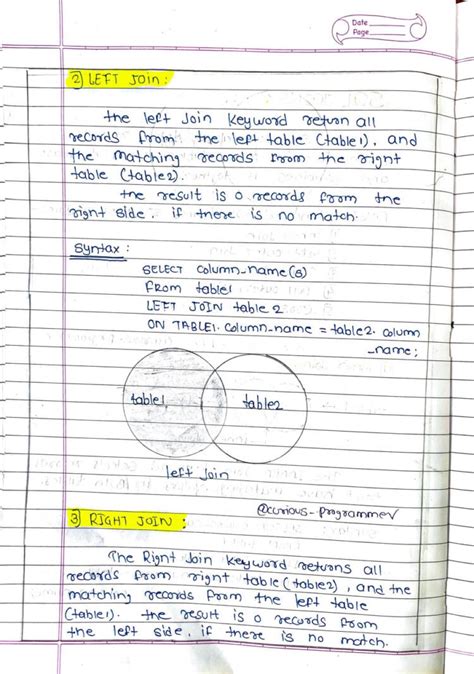 Date
Page
2) LEFT Join :
the left Join Keyword return all
records from the left table (table1), and
the matching records from the right
table (table2).
the result is 0 records from the
right side. if there is no match.
Syntax :
SELECT column_name(s)
FROM table1
LEFT JOIN table 2
ON TABLE1. column_name = table2. column
_name;
table1
table2
left Join
@curious_programmer
3) RIGHT JOIN :
The Right Join keyword returns all
records from right table (table2), and the
matching records from the left table
(table1). the result is 0 records from
the left side, if there is no match.